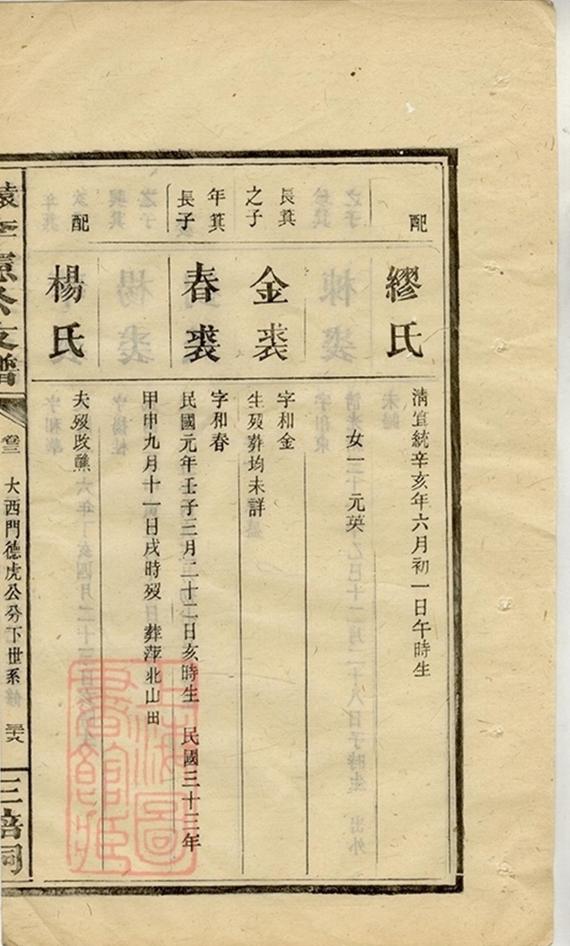 配
繆氏
清宣統辛亥年六月初一日午時生
女一 元英
長箕
之子
金裘
字和金
生殁葬均未詳
年箕
長子
春裘
字和春
民國元年壬子三月二十二日亥時生 民國三十三年
甲申九月十一日戌時殁 葬萍北山田
配
楊氏
夫殁改醮
卷三 大西門德虎公分下世系